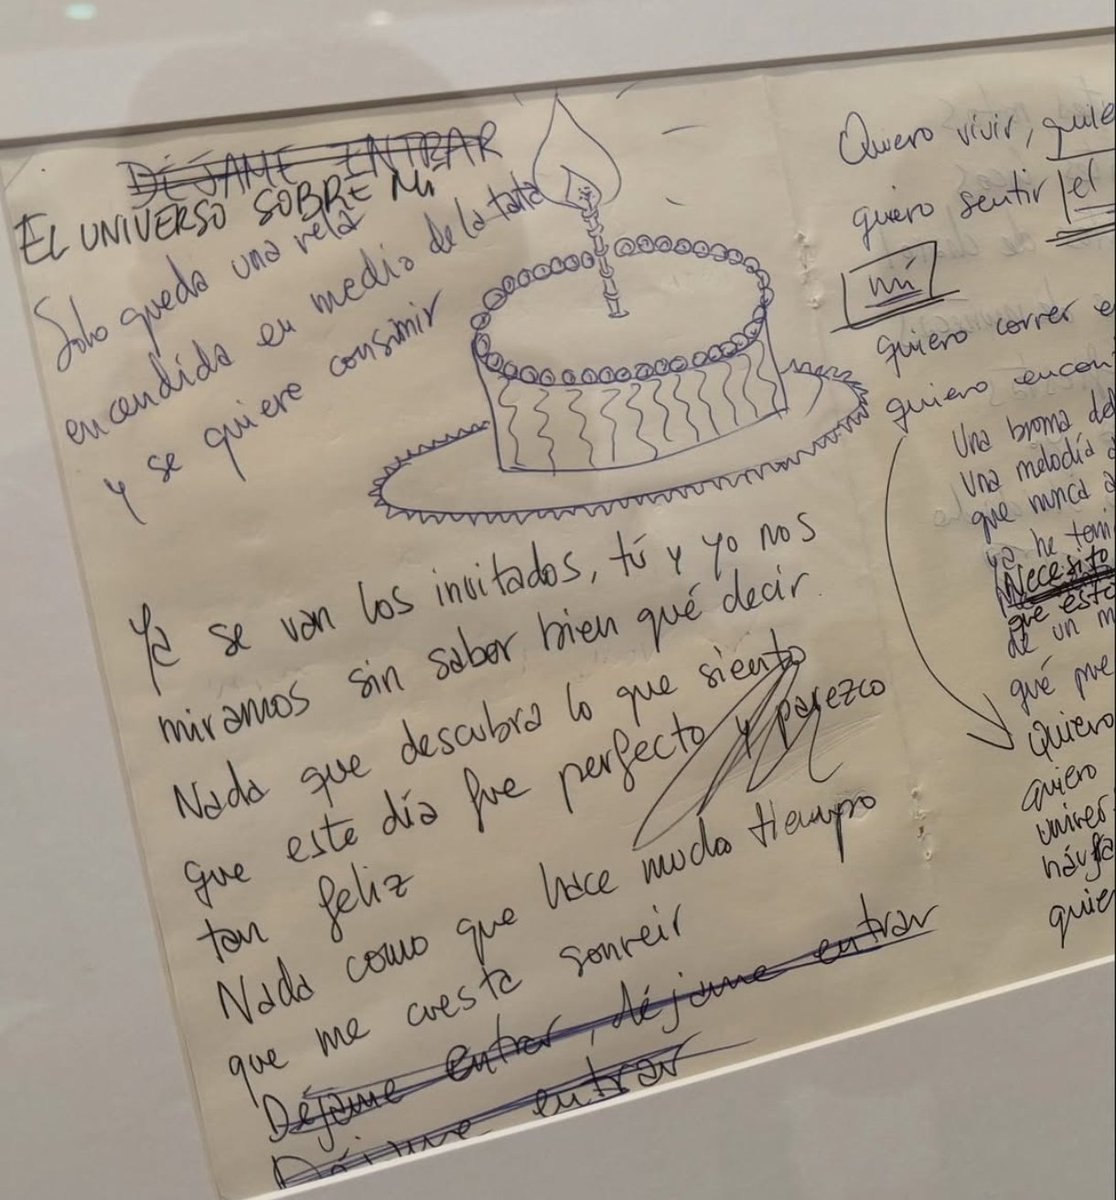 DÉJAME ENTRAR
EL UNIVERSO SOBRE MÍ
Solo queda una vela
encendida en medio de la tarta
y se quiere consumir
Ya se van los invitados, tú y yo nos
miramos sin saber bien qué decir.
Nada que descubra lo que siento
que este día fue perfecto y parezco
tan feliz
Nada como que hace mucho tiempo
que me cuesta sonreir
Déjame entrar, déjame entrar
Déjame entrar
Quiero vivir, quie
quiero sentir el
mí
quiero correr e
quiero encon
Una broma del
Una melodía
que nunca a
ya he teni
Necesito
que esto
de un m
qué pue
Quiero
quiero
univer
náufra
quie